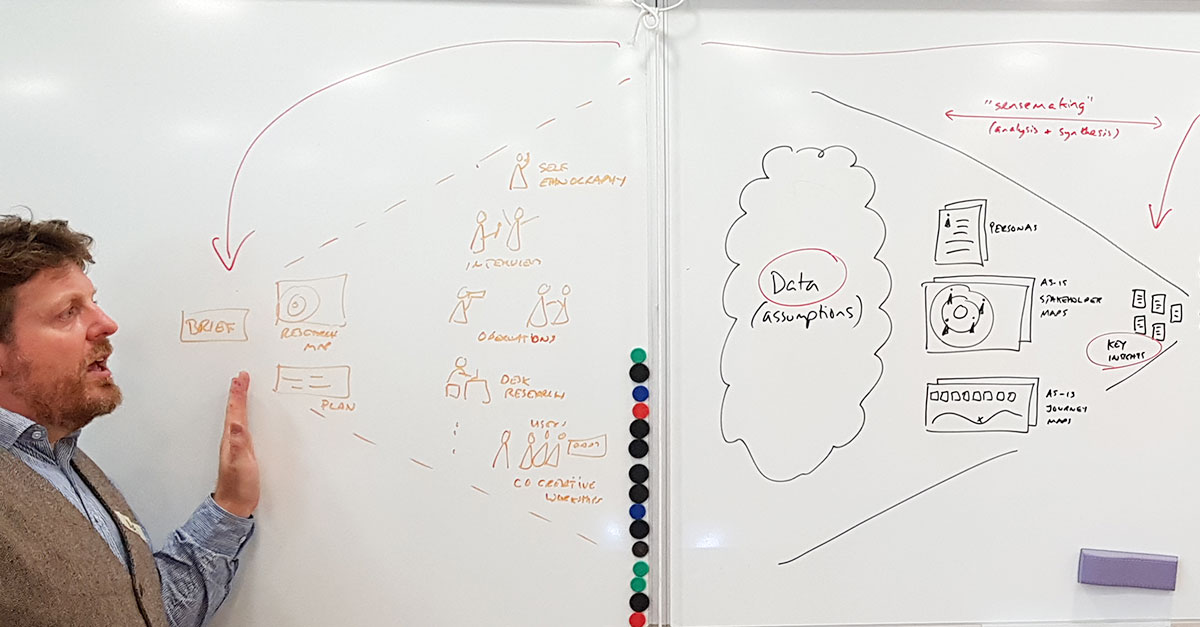 BRIEF
RESEARCH
MAP
PLAN
SELF
ETNOGRAPHY
INTERVIEW
DESK
RESEARCH
USERS
CO CREATIVE
WORKSHOPS
Data
(assumptions)
"sensemaking"
(analysis + synthesis)
PERSONAS
AS-IS
STAKEHOLDER
MAPS
AS-IS
JOURNEY
MAPS
KEY
INSIGHTS